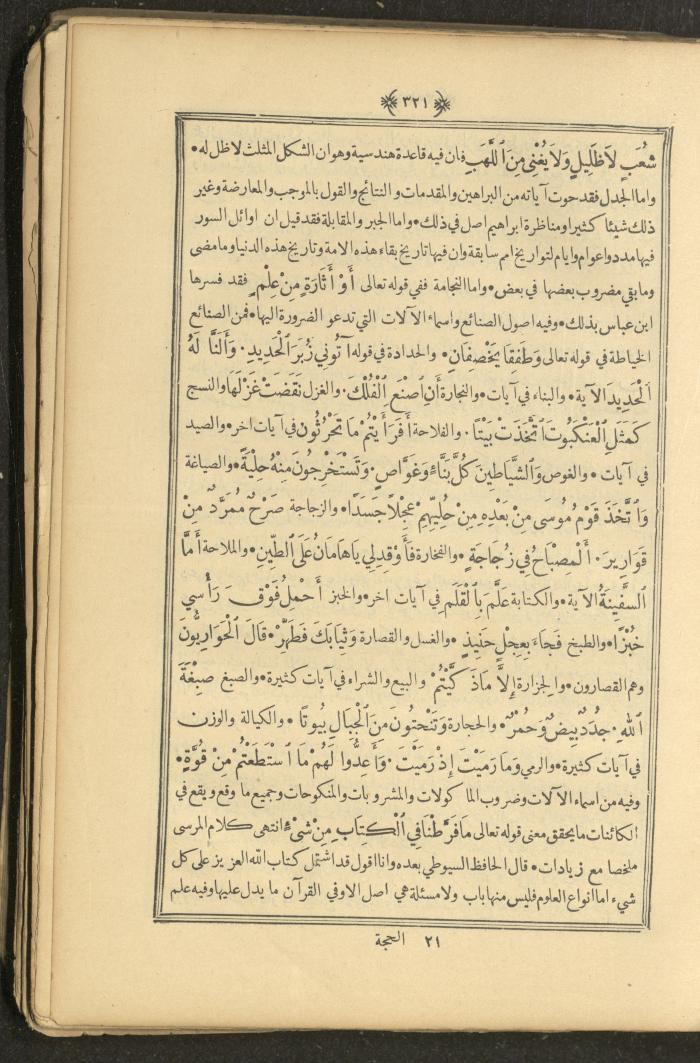 ٣٢١
شُعَبٍ لَا ظَلِيلٍ وَلَا يُغْنِي مِنَ ٱللَّهَبِ فان فيه قاعدة هندسية وهو ان الشكل المثلث لا ظل له •
واما الجدل فقد حوت آياته من البراهين والمقدمات والنتائج والقول بالموجب والمعارضة وغير
ذلك شيئا كثيرا ومناظرة ابراهيم اصل في ذلك • واما الجبر والمقابلة فقد قيل ان اوائل السور
فيها مدد واعوام وايام لتواريخ امم سابقة وان فيها تاريخ بقاء هذه الامة وتاريخ هذه الدنيا وما مضى
وما بقي مضروب بعضها في بعض • واما النجامة ففي قوله تعالى أَوْ أَثَارَةٍ مِنْ عِلْمٍ فقد فسرها
ابن عباس بذلك • وفيه اصول الصنائع واسماء الآلات التي تدعو الضرورة اليها • فمن الصنائع
الخياطة في قوله تعالى وَطَفِقَا يَخْصِفَانِ • والحدادة في قوله آتُونِي زُبَرَ ٱلْحَدِيدِ . وَأَلَنَّا لَهُ
ٱلْحَدِيدَ الآية • والبناء في آيات • والنجارة أَنِ ٱصْنَعِ ٱلْفُلْكَ . والغزل نَقَضَتْ غَزْلَهَا والنسج
كَمَثَلِ ٱلْعَنْكَبُوتِ ٱتَّخَذَتْ بَيْتًا . والفلاحة أَفَرَأَيْتُمْ مَا تَحْرُثُونَ في آيات اخر • والصيد
في آيات • والغوص وَٱلشَّيَاطِينَ كُلَّ بَنَّاءٍ وَغَوَّاصٍ . وَتَسْتَخْرِجُونَ مِنْهُ حِلْيَةً • والصياغة
وَٱتَّخَذَ قَوْمُ مُوسَى مِنْ بَعْدِهِ مِنْ حُلِيِّهِمْ عِجْلًا جَسَدًا • والزجاجة صَرْحٌ مُمَرَّدٌ مِنْ
قَوَارِيرَ . ٱلْمِصْبَاحُ فِي زُجَاجَةٍ • والفخارة فَأَوْقِدْ لِي يَا هَامَانُ عَلَى ٱلطِّينِ • والملاحة أَمَّا
ٱلسَّفِينَةُ الآية • والكتابة عَلَّمَ بِٱلْقَلَمِ في آيات اخر • والخبز أَحْمِلُ فَوْقَ رَأْسِي
خُبْزًا • والطبخ فَجَاءَ بِعِجْلٍ حَنِيذٍ • والغسل والقصارة وَثِيَابَكَ فَطَهِّرْ • قَالَ ٱلْحَوَارِيُّونَ
وهم القصارون • والجزارة إِلَّا مَا ذَكَّيْتُمْ والبيع والشراء في آيات كثيرة • والصبغ صِبْغَةَ
ٱللهِ . جُدَدٌ بِيضٌ وَحُمْرٌ • والحجارة وَتَنْحِتُونَ مِنَ ٱلْجِبَالِ بُيُوتًا • والكيالة والوزن
في آيات كثيرة • والرمي وَمَا رَمَيْتَ إِذْ رَمَيْتَ . وَأَعِدُّوا لَهُمْ مَا ٱسْتَطَعْتُمْ مِنْ قُوَّةٍ •
وفيه من اسماء الآلات وضروب المأكولات والمشروبات والمنكوحات وجميع ما وقع ويقع في
الكائنات ما يحقق معنى قوله تعالى مَا فَرَّطْنَا فِي ٱلْكِتَابِ مِنْ شَيْءٍ انتهى كلام المرسى
ملخصا مع زيادات • قال الحافظ السيوطي بعده وانا اقول قد اشتمل كتاب الله العزيز على كل
شيء اما انواع العلوم فليس منها باب ولا مسئلة هي اصل الا وفي القرآن ما يدل عليها وفيه علم
٢١ الحجة